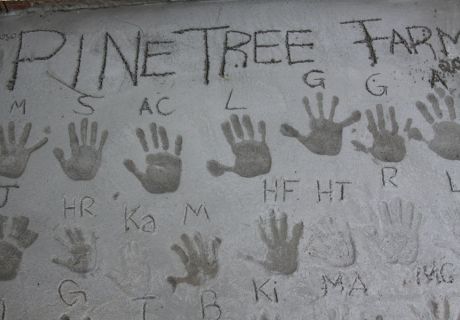 PINETREE FARM
M S AC L G G A
J HR Ka M HF HT R L
G T B Ki MA MG